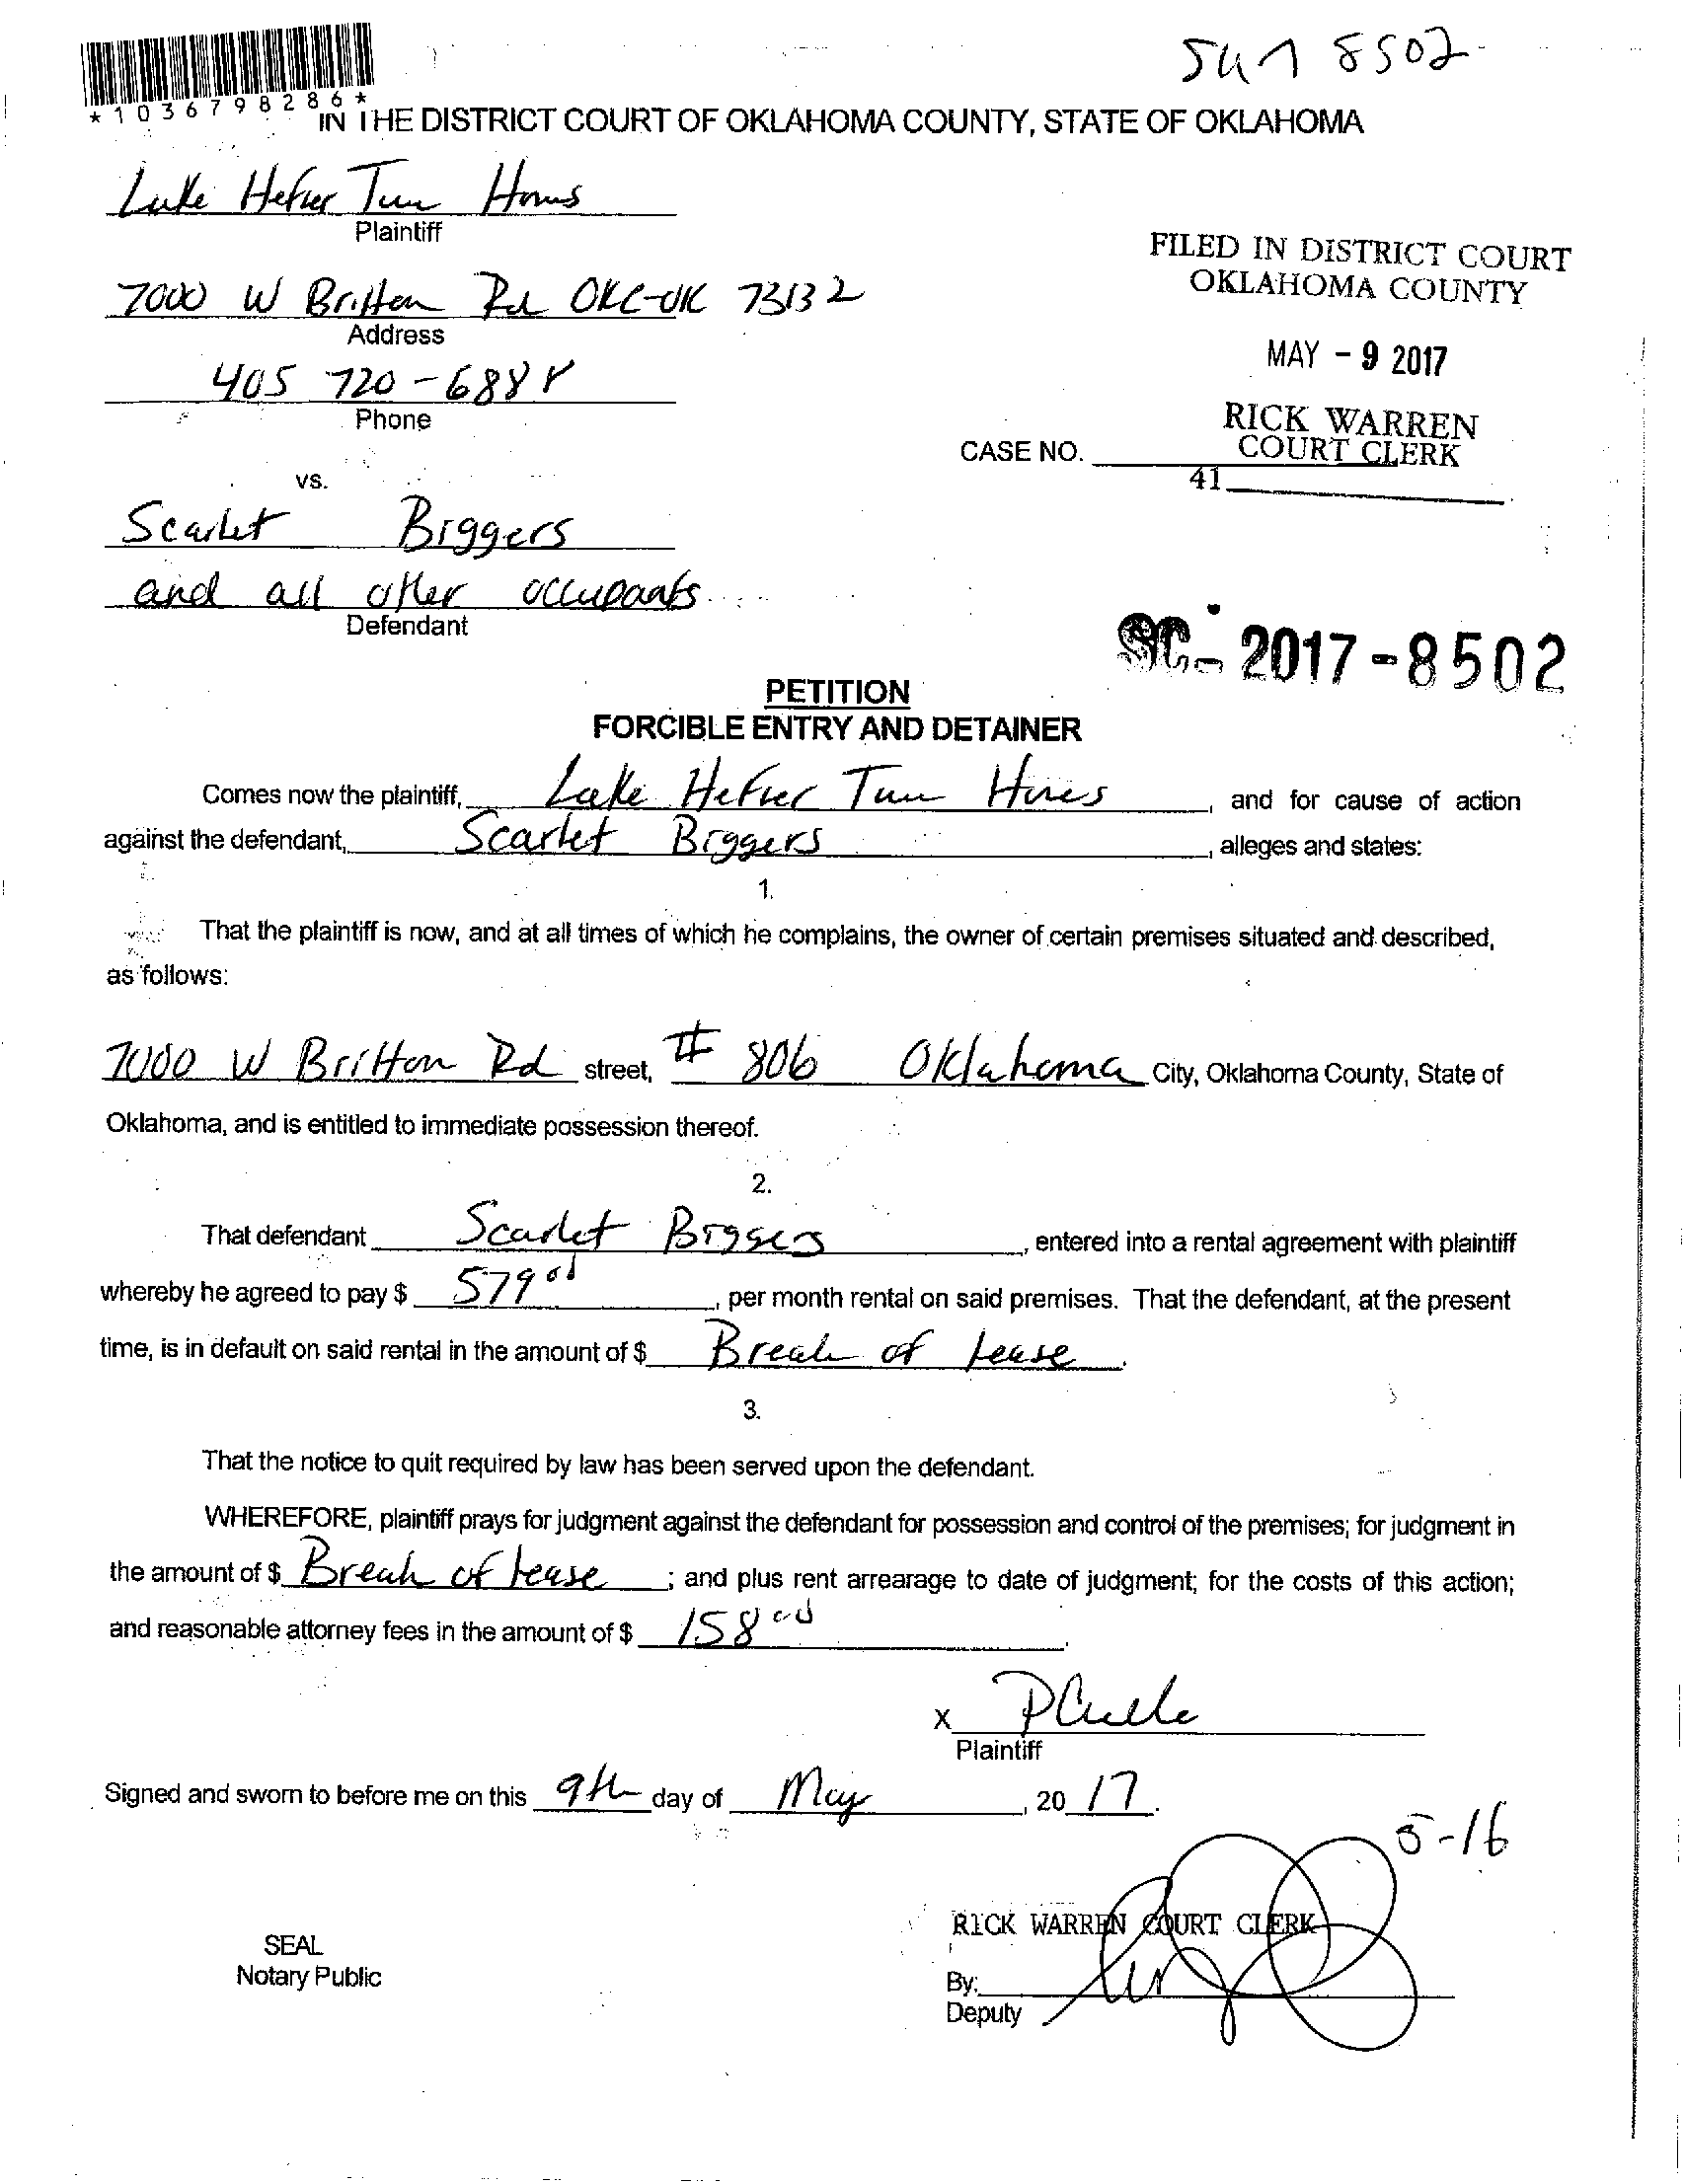 5417 8502
*1036798286*
IN THE DISTRICT COURT OF OKLAHOMA COUNTY, STATE OF OKLAHOMA
Lake Hefner Twn Homs
Plaintiff
FILED IN DISTRICT COURT
OKLAHOMA COUNTY
7000 W Britton Rd OKC-OK 73132
Address
MAY - 9 2017
405 720-6888
Phone
RICK WARREN
COURT CLERK
CASE NO.
41
vs.
Scarlet Biggers
and all other occupants
Defendant
SC-2017-8502
PETITION
FORCIBLE ENTRY AND DETAINER
Comes now the plaintiff, Lake Hefner Twn Homes, and for cause of action
against the defendant, Scarlet Biggers, alleges and states:
1.
That the plaintiff is now, and at all times of which he complains, the owner of certain premises situated and described,
as follows:
7000 W Britton Rd street, # 806 Oklahoma City, Oklahoma County, State of
Oklahoma, and is entitled to immediate possession thereof.
2.
That defendant Scarlet Biggers, entered into a rental agreement with plaintiff
whereby he agreed to pay $ 579 00, per month rental on said premises. That the defendant, at the present
time, is in default on said rental in the amount of $ Breach of Lease.
3.
That the notice to quit required by law has been served upon the defendant.
WHEREFORE, plaintiff prays for judgment against the defendant for possession and control of the premises; for judgment in
the amount of $ Breach of Lease; and plus rent arrearage to date of judgment; for the costs of this action;
and reasonable attorney fees in the amount of $ 158 00.
X
Plaintiff
Signed and sworn to before me on this 9th day of May, 20 17.
5-16
RICK WARREN COURT CLERK
SEAL
Notary Public
By:
Deputy